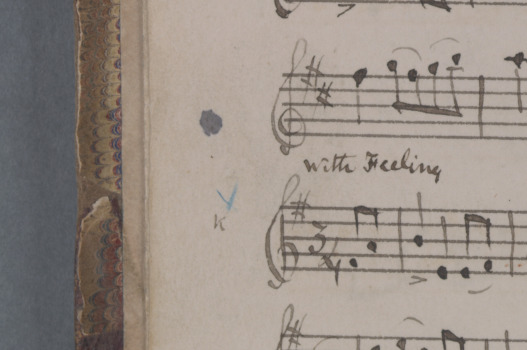 With Feeling
3
4
K